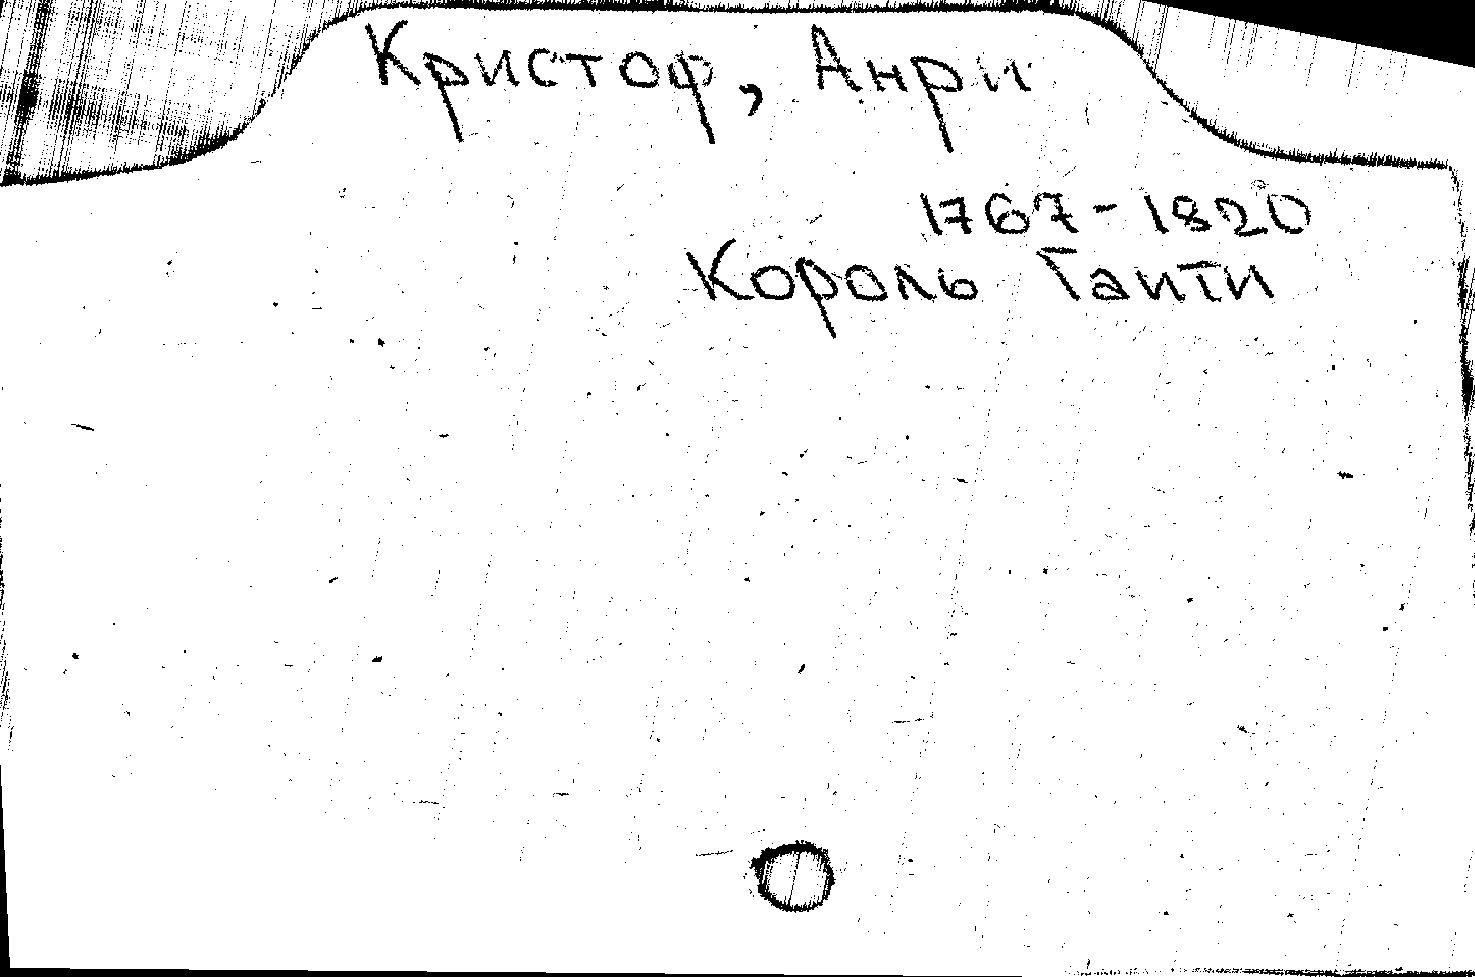 Кристоф, Анри
1767-1820
Король Гаити